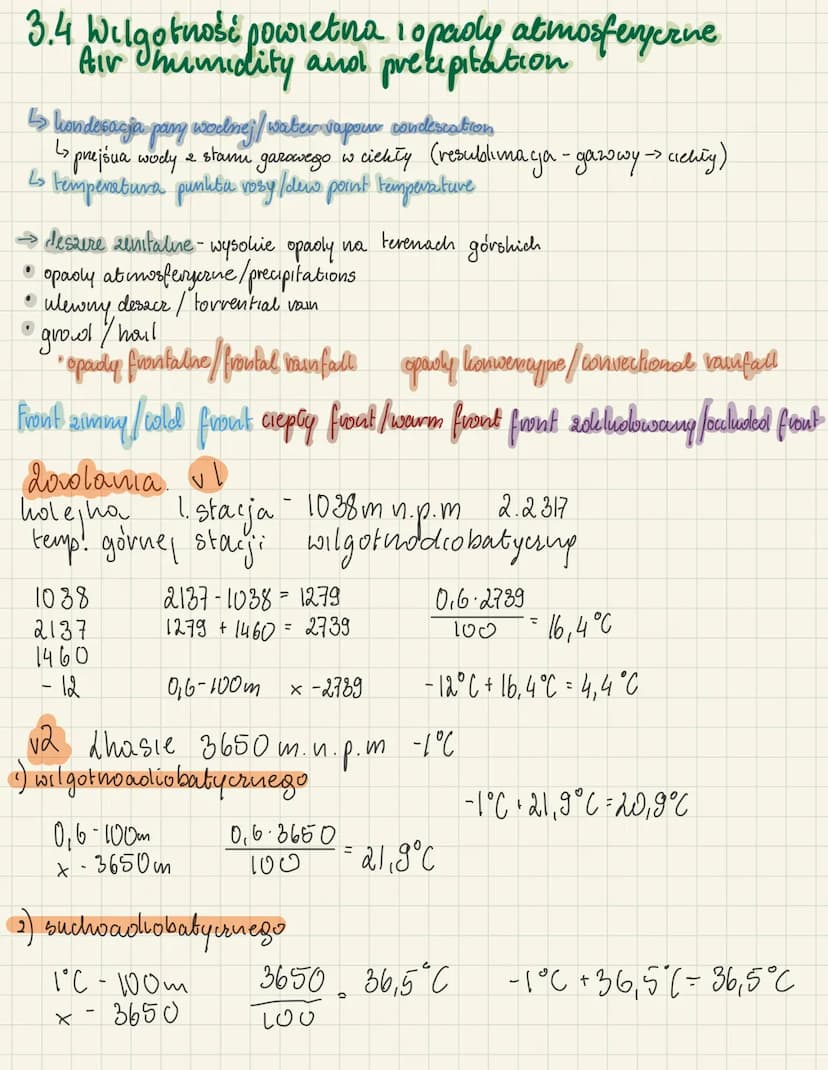 3.4 Wilgotność powietrza i opady atmosferyczne
Air humidity and precipitation
↳ kondesacja pary wodnej/water vapour condesation
↳ prejścia wody z stanu gazowego w ciekły (resublimacja - gazowy → ciekły)
↳ temperatura punktu rosy/dew point temperature
→ deszcze zenitalne - wysokie opady na terenach górskich
• opady atmosferyczne/precipitations
• ulewny deszcz / torrential rain
• grad / hail
• opady frontalne/frontal rainfall opady konwekcyjne/convectional rainfall
Front zimny/cold front ciepły front/warm front front zokludowany/occluded front
Zadania v1
kolejka 1. stacja - 1038m n.p.m 2.2317
temp. górnej stacji
1038 2137 - 1038 = 1279 0,6 · 2739
2137 1279 + 1460 = 2739 100 = 16,4°C
1460
- 12 0,6 - 100m x - 2739 -12°C + 16,4°C = 4,4°C
v2 Lhasie 3650 m.n.p.m -1°C
1) wilgotnoadiobatycznego
-1°C + 21,9°C = 20,9°C
0,6 - 100m 0,6 · 3650
x - 3650m 100 = 21,9°C
2) suchoadiobatycznego
1°C - 100m 3650 = 36,5°C -1°C + 36,5°C = 36,5°C
x - 3650 100